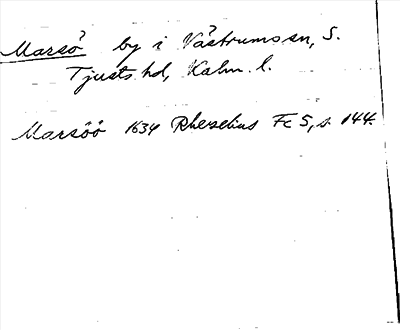 Marsö by i Västrum sn, S.
Tjusts hd, Kalm. l.
Marsöö 1634 Rhezelius Fc 5, s. 144.